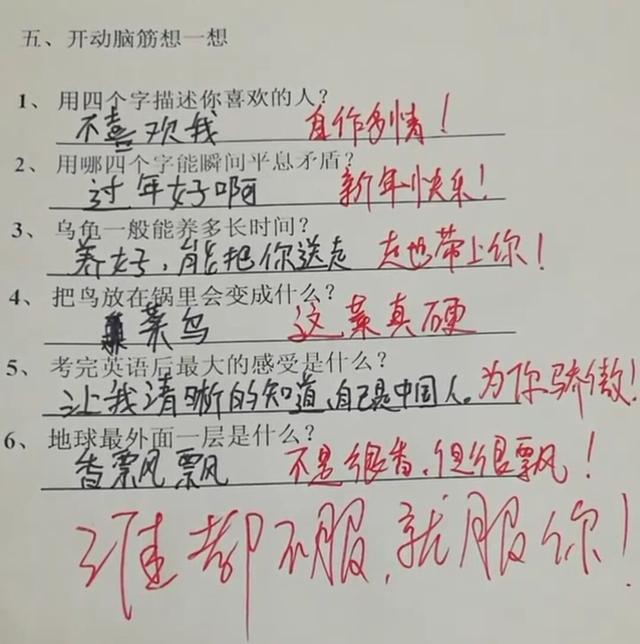 五、开动脑筋想一想
1、用四个字描述你喜欢的人?
不喜欢我 自作多情!
2、用哪四个字能瞬间平息矛盾?
过年好啊 新年快乐!
3、乌龟一般能养多长时间?
养好,能把你送走 走也带上你!
4、把鸟放在锅里会变成什么?
菜鸟 这菜真硬
5、考完英语后最大的感受是什么?
让我清晰的知道,自己是中国人。为你骄傲!
6、地球最外面一层是什么?
香飘飘 不是很香,但很飘!
谁都不服,就服你!